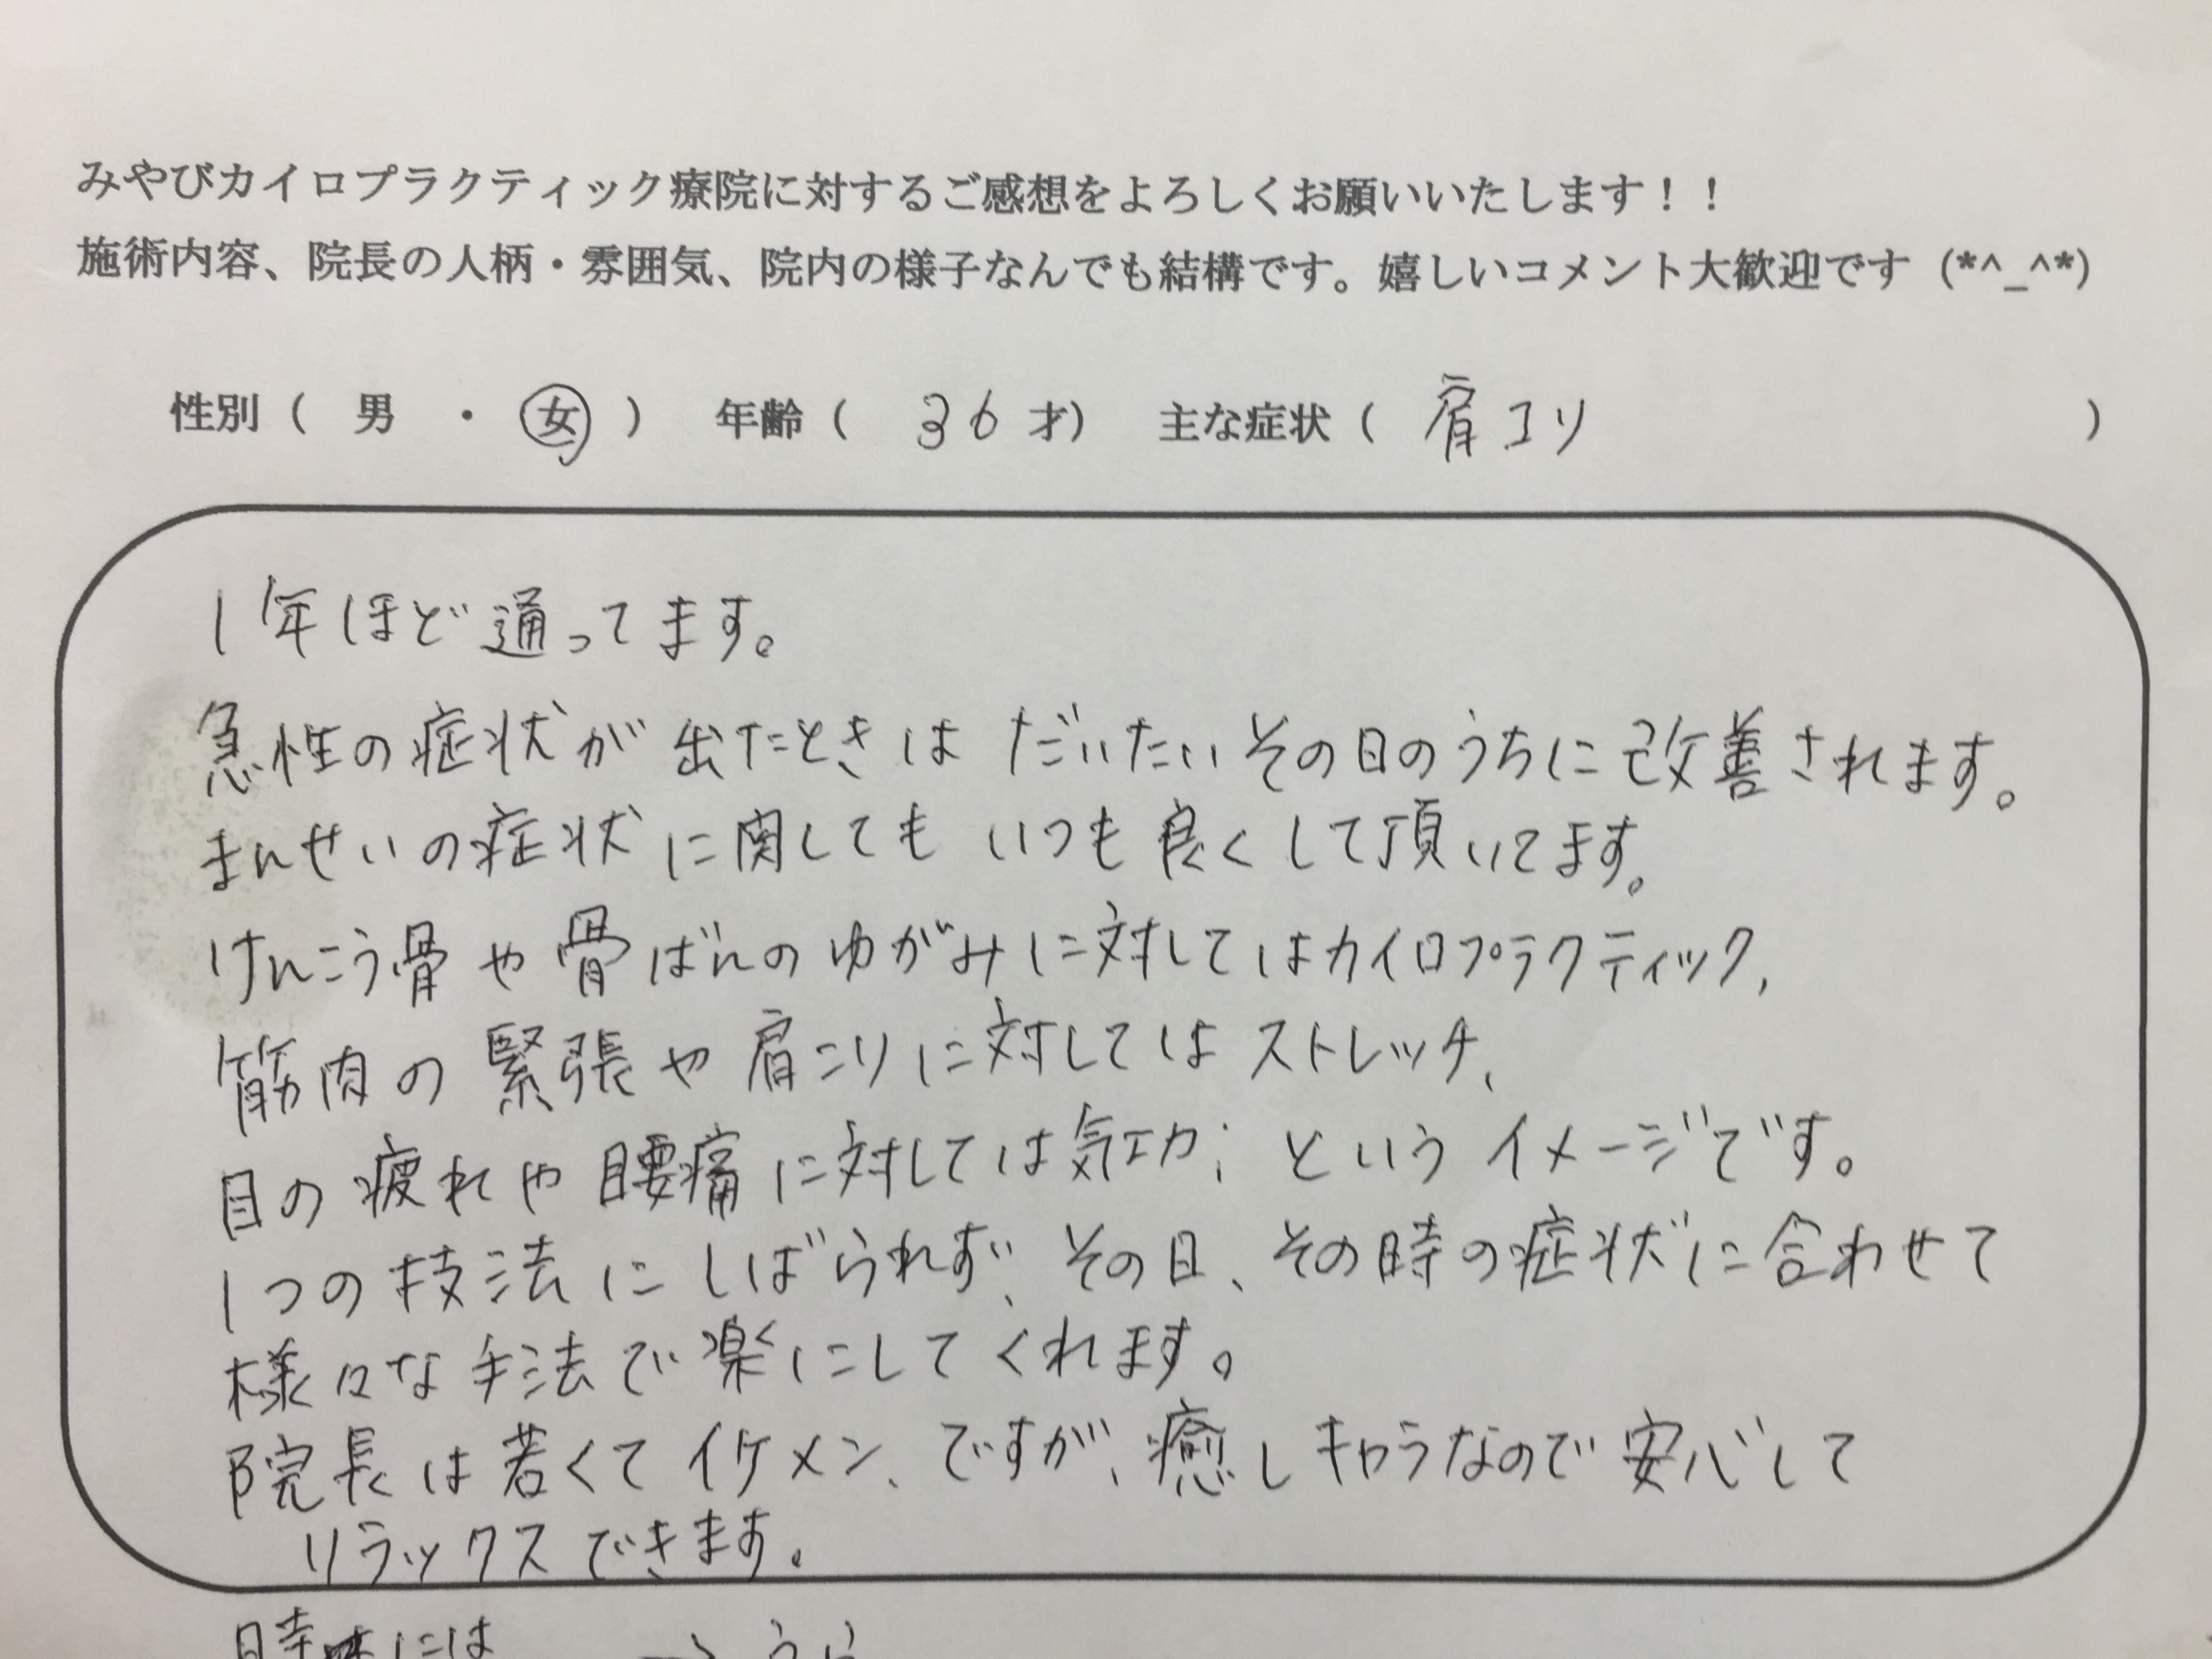 みやびカイロプラクティック療院に対するご感想をよろしくお願いいたします！！
施術内容、院長の人柄・雰囲気、院内の様子なんでも結構です。嬉しいコメント大歓迎です (*^_^*)
性別（ 男 ・ 女 ） 年齢（ 36 才） 主な症状（ 肩コリ ）
1年ほど通ってます。
急性の症状が出たときは だいたいその日のうちに改善されます。
まんせいの症状に関してもいつも良くして頂いてます。
けんこう骨や骨ばんのゆがみに対してはカイロプラクティック、
筋肉の緊張や肩こりに対してはストレッチ、
目の疲れや腰痛に対しては気功；というイメージです。
1つの技法にしばられず、その日、その時の症状に合わせて
様々な手法で楽にしてくれます。
院長は若くてイケメン、ですが、癒しキャラなので安心して
リラックスできます。
時には → うら